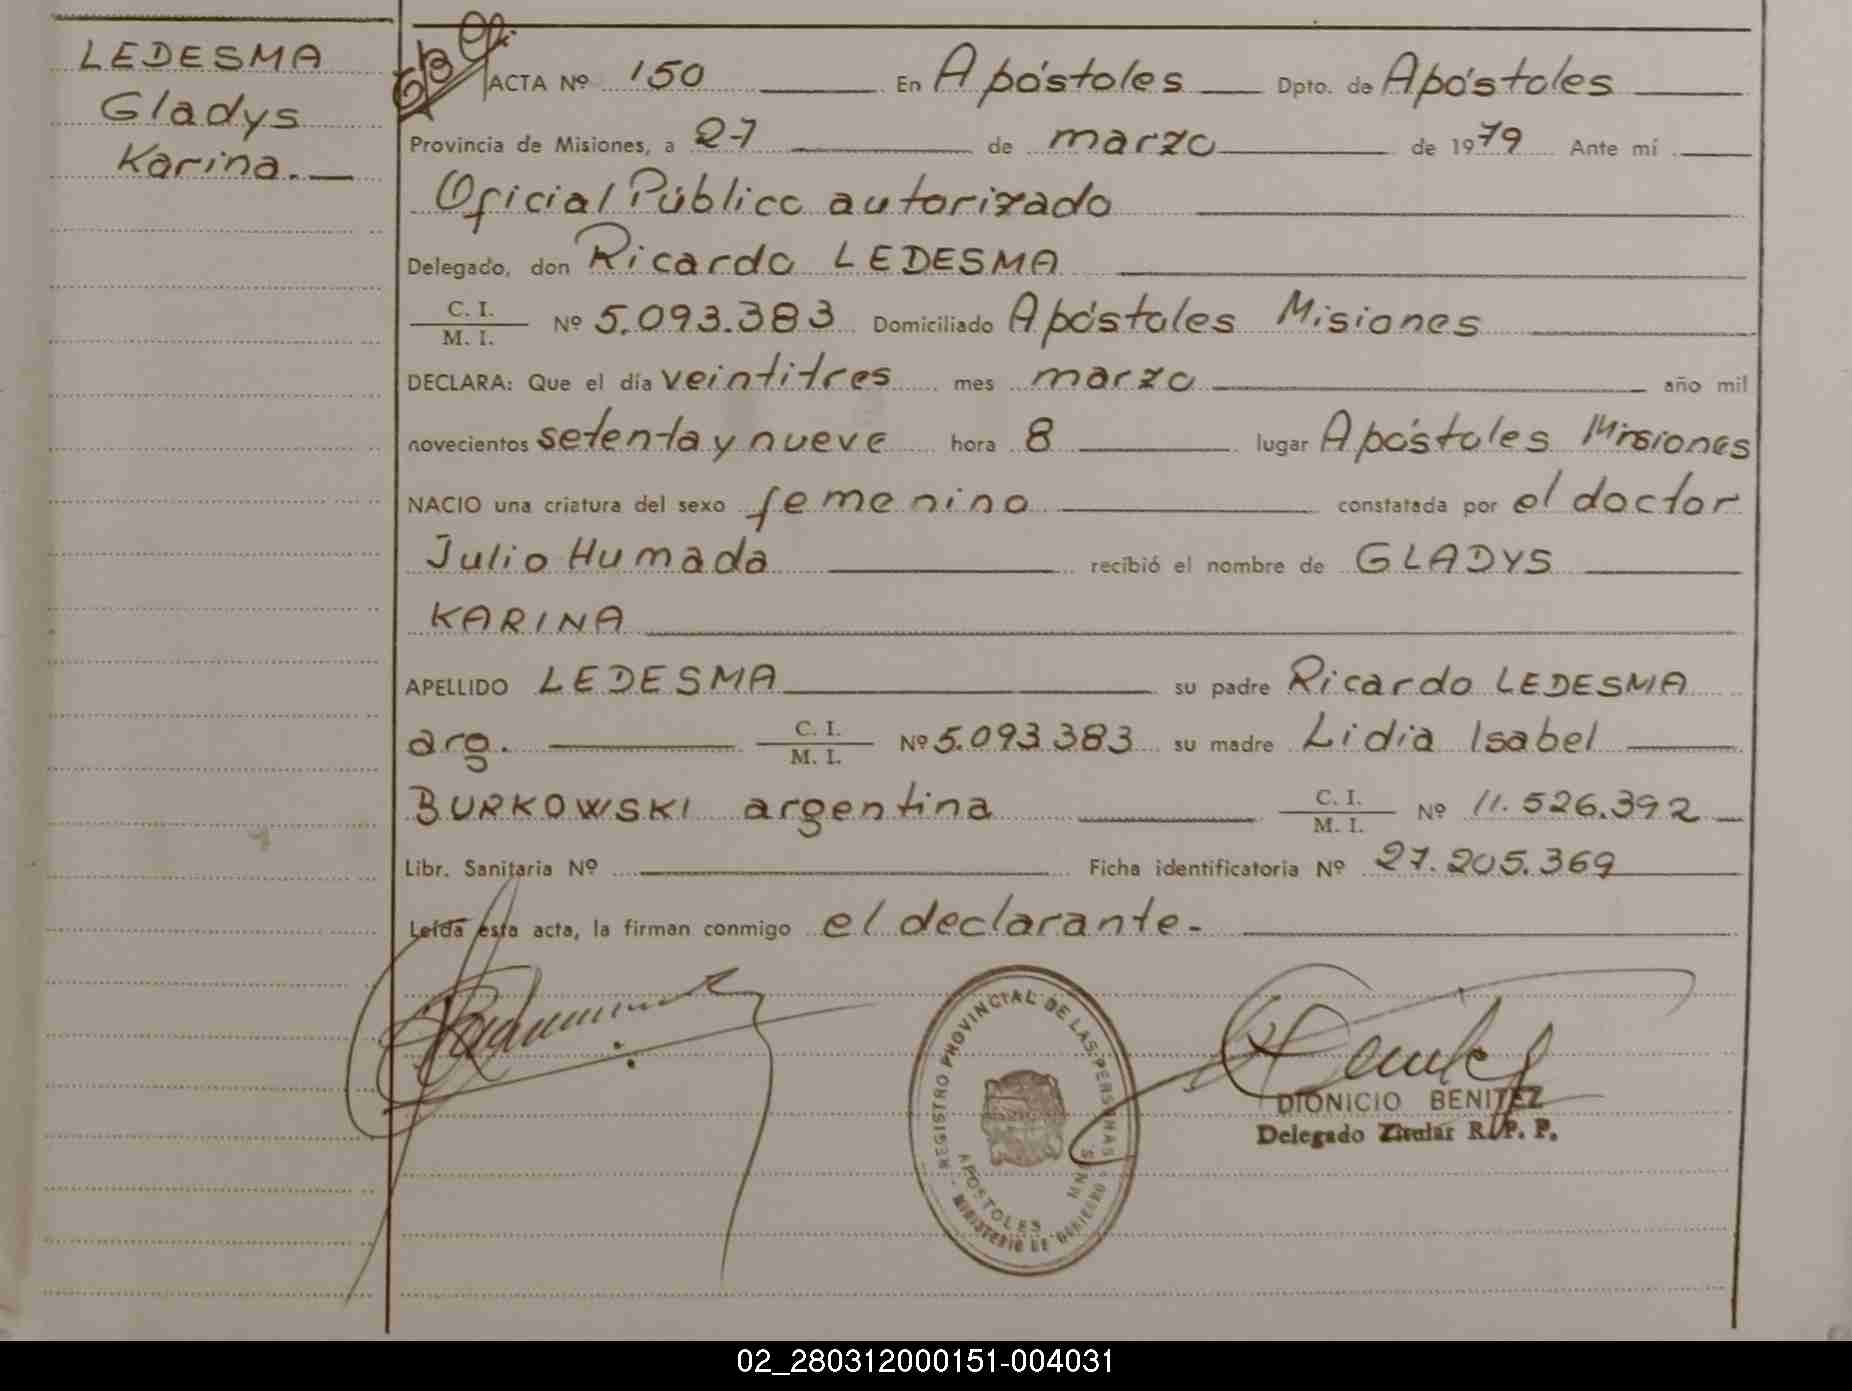 LEDESMA
Gladys
Karina.
ACTA Nº 150 En Apóstoles Dpto. de Apóstoles
Provincia de Misiones, a 27 de marzo de 1979 Ante mí
Oficial Público autorizado
Delegado, don Ricardo LEDESMA
C. I.
M. I.
Nº 5.093.383 Domiciliado Apóstoles Misiones
DECLARA: Que el día veintitres mes marzo año mil
novecientos setenta y nueve hora 8 lugar Apóstoles Misiones
NACIO una criatura del sexo femenino constatada por el doctor
Julio Humada recibió el nombre de GLADYS
KARINA
APELLIDO LEDESMA su padre Ricardo LEDESMA
arg. C. I.
M. I.
Nº 5.093.383 su madre Lidia Isabel
BURKOWSKI argentina C. I.
M. I.
Nº 11.526.392
Libr. Sanitaria Nº Ficha identificatoria Nº 27.205.369
Leída esta acta, la firman conmigo el declarante.-
REGISTRO PROVINCIAL DE LAS PERSONAS
APOSTOLES MNES
MINISTERIO DE GOBIERNO
DIONICIO BENITEZ
Delegado Titular R. P. P.
02_280312000151-004031